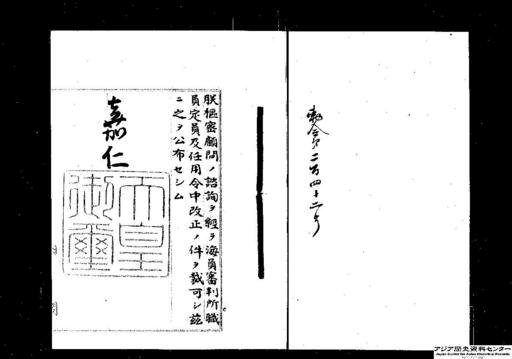 勅令第二百四十二号
朕枢密顧問ノ諮詢ヲ経テ海員審判所職
員定員及任用令中改正ノ件ヲ裁可シ茲
ニ之ヲ公布セシム
嘉仁
天皇御璽
アジア歴史資料センター
Japan Center for Asian Historical Records